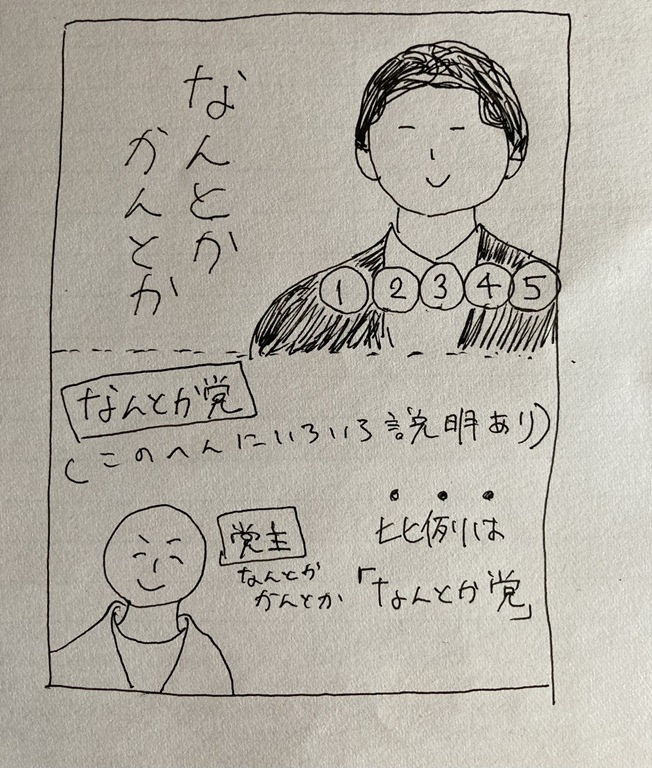 なんとか
かんとか
① ② ③ ④ ⑤
なんとか党
(このへんにいろいろ説明あり)
党主
なんとか
かんとか
比例は
「なんとか党」